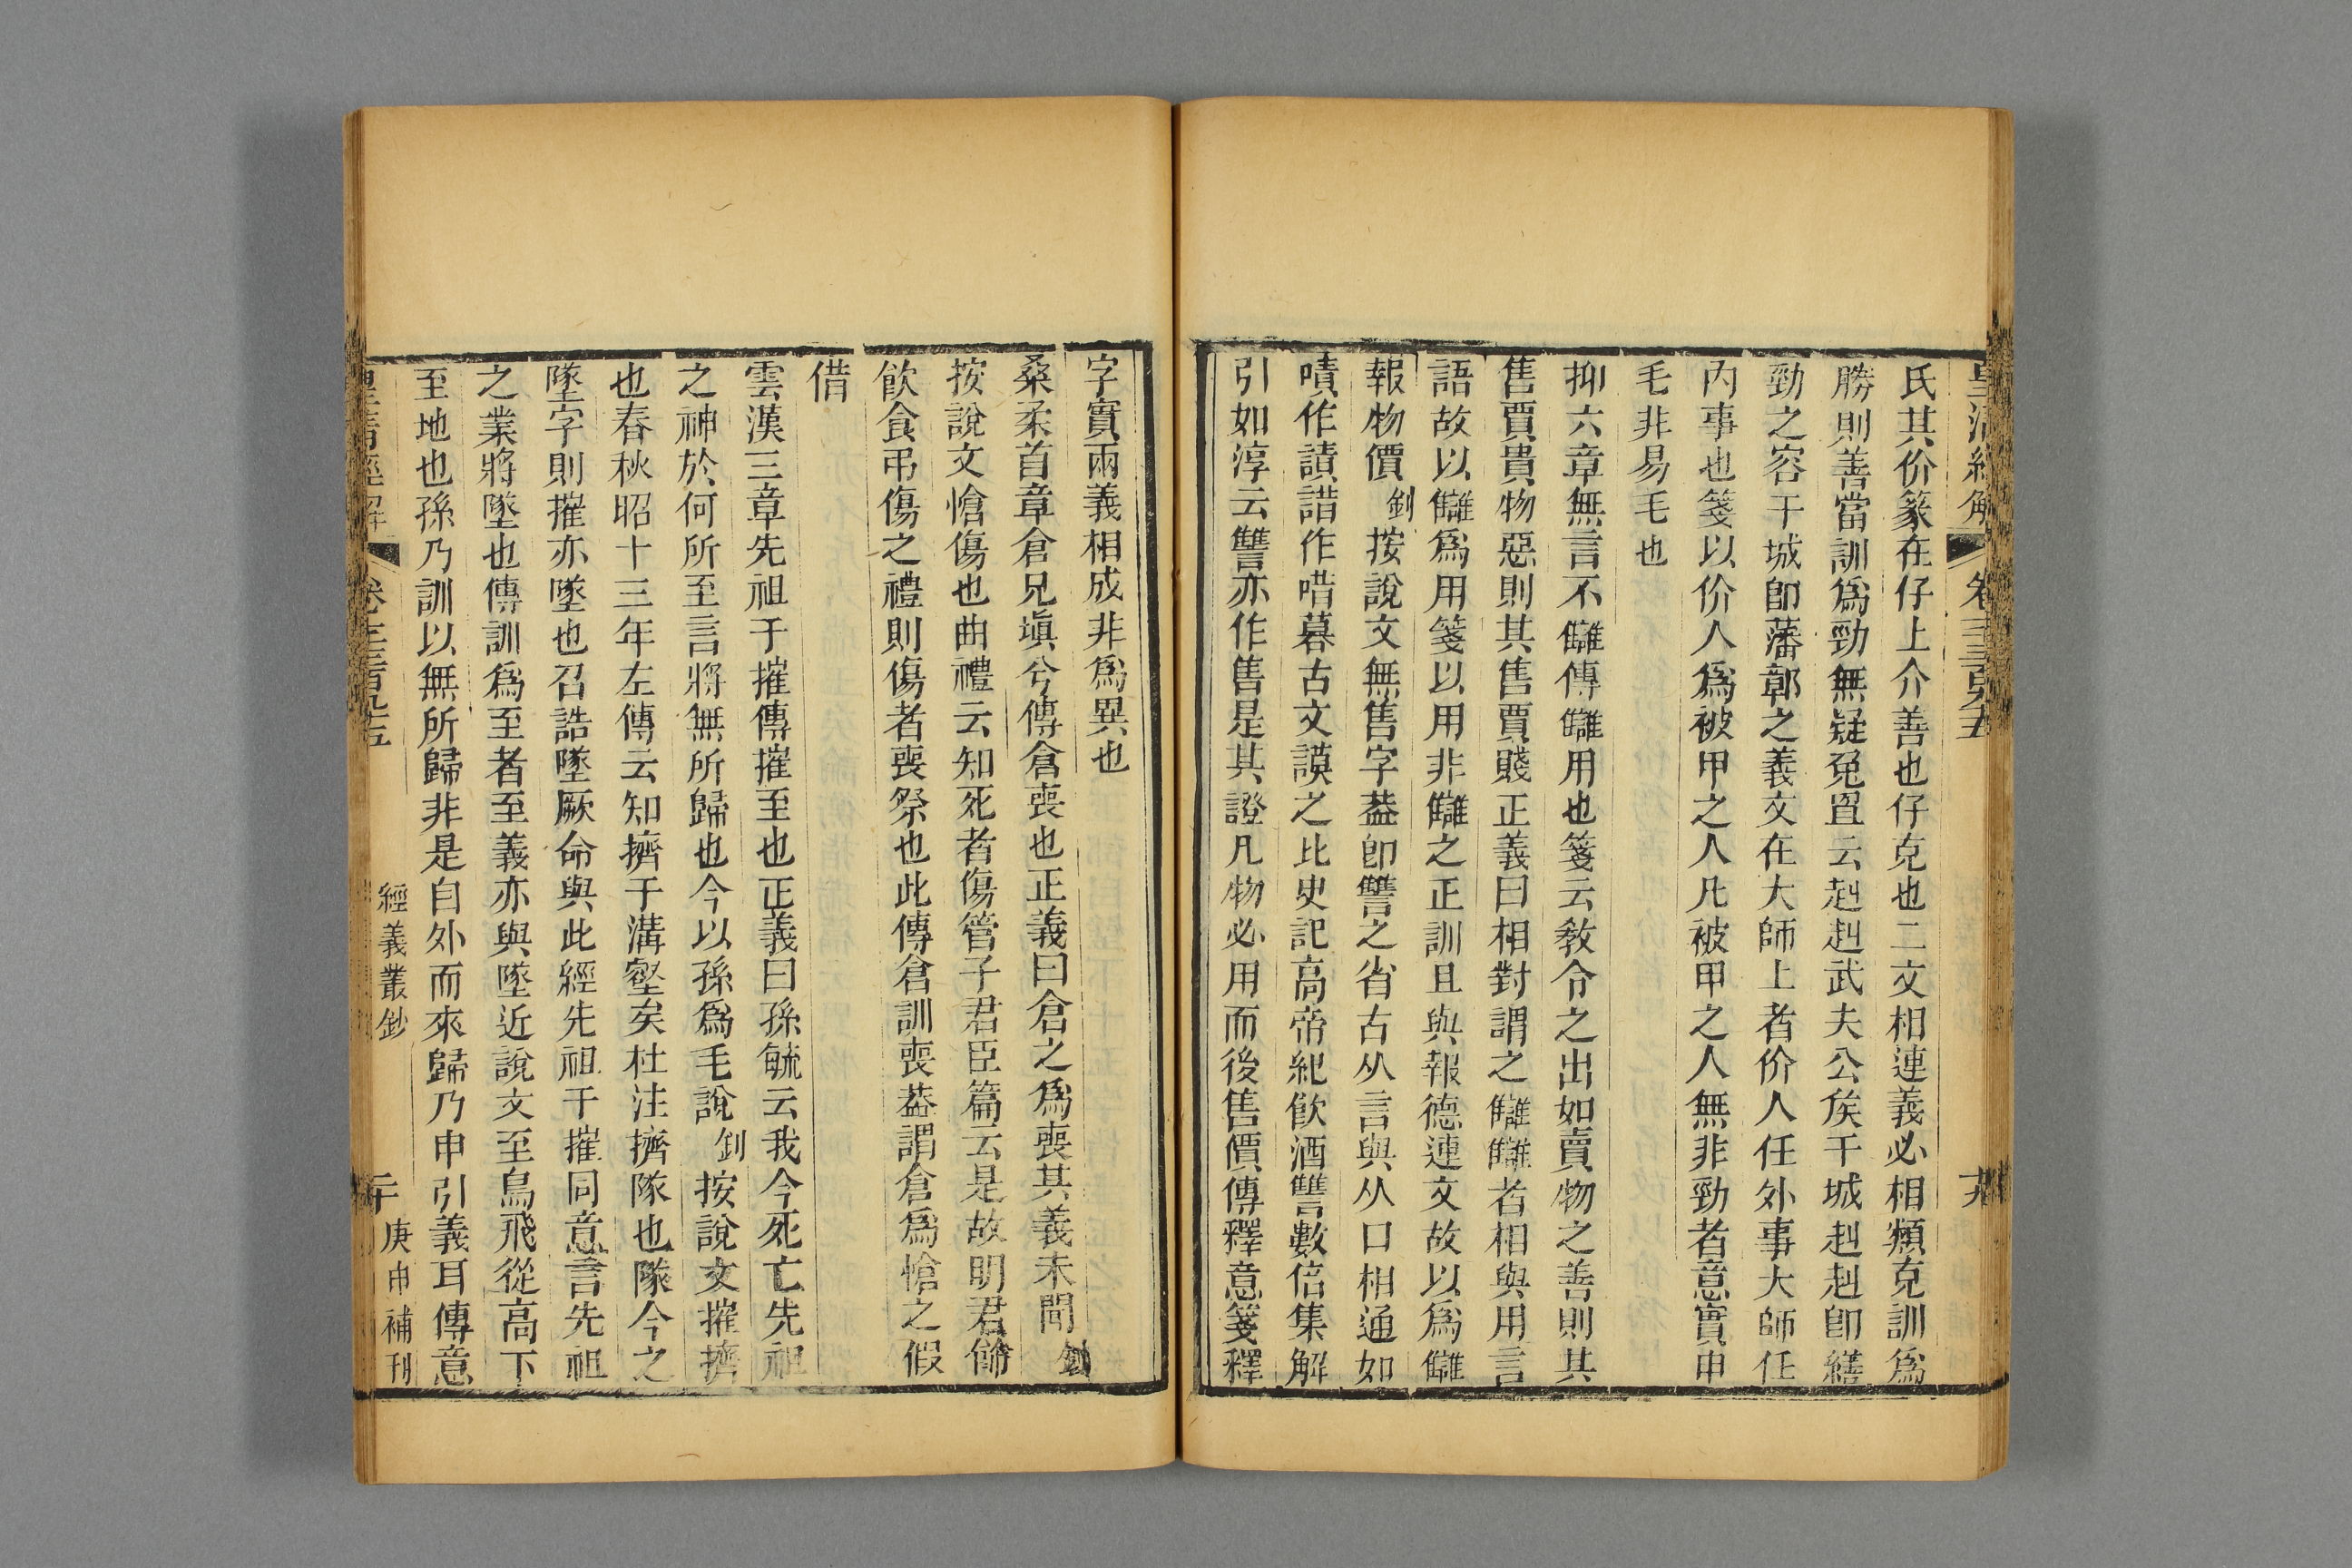 氏其价篆在仔上介善也仔克也二文相連義必相類克訓爲
勝則善當訓爲勁無疑兔罝云赳赳武夫公矦干城赳赳卽繕
勁之容干城卽藩鄣之義文在大師上者价人任外事大師任
內事也箋以价人爲被甲之人凡被甲之人無非勁者意實申
毛非易毛也
抑六章無言不讎傳讎用也箋云敎令之出如賣物之善則其
售賈貴物惡則其售賈賤正義曰相對謂之讎讎者相與用言
語故以讎爲用箋以用非讎之正訓且與報德連文故以爲讎
報物價釗按說文無售字葢卽讐之省古从言與从口相通如
嘖作讀譜作唶謩古文謨之比史記高帝紀飮酒讐數倍集解
引如淳云讐亦作售是其證凡物必用而後售價傳釋意箋釋
字實兩義相成非爲異也
桑柔首章倉兄塡兮傳倉喪也正義曰倉之爲喪其義未聞釗
按說文愴傷也曲禮云知死者傷管子君臣篇云是故明君飾
飮食弔傷之禮則傷者喪祭也此傳倉訓喪葢謂倉爲愴之假
借
雲漢三章先祖于摧傳摧至也正義曰孫毓云我今死亡先祖
之神於何所至言將無所歸也今以孫爲毛說釗按說文摧擠
也春秋昭十三年左傳云知擠于溝壑矣杜注擠隊也隊今之
墜字則摧亦墜也召誥墜厥命與此經先祖于摧同意言先祖
之業將墜也傳訓爲至者至義亦與墜近說文至鳥飛從高下
至地也孫乃訓以無所歸非是自外而來歸乃申引義耳傳意
經義叢鈔
庚申補刊